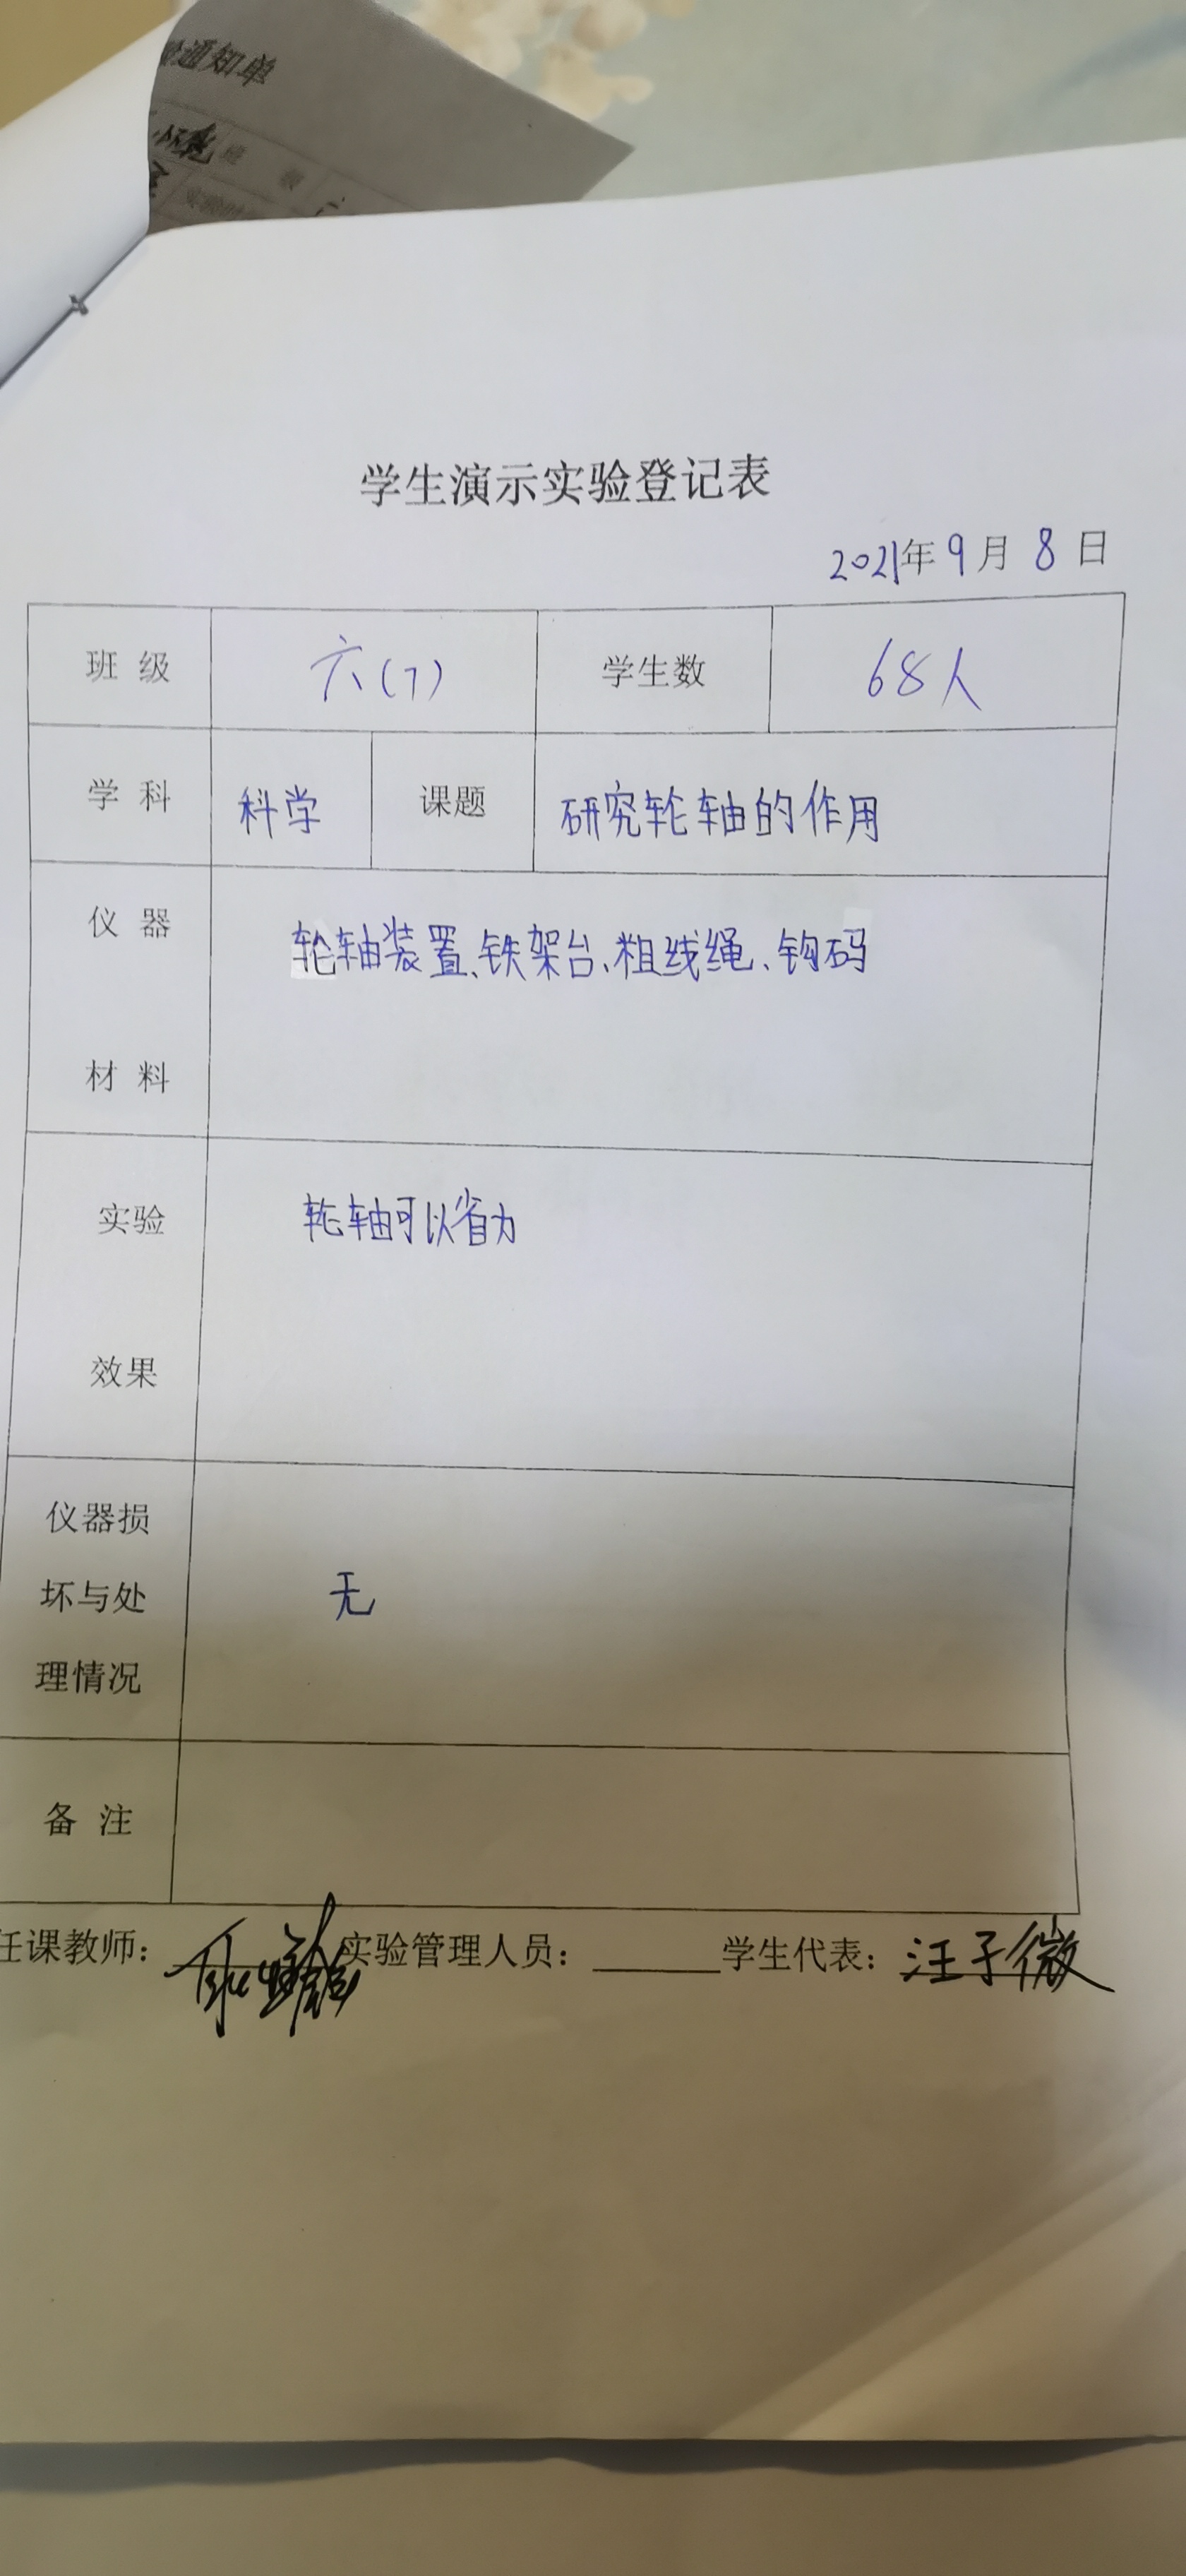 验通知单
学生演示实验登记表
2021年9月8日
班级 六(7) 学生数 68人
学科 科学 课题 研究轮轴的作用
仪器 轮轴装置、铁架台、粗线绳、钩码
材料
实验 轮轴可以省力
效果
仪器损
坏与处 无
理情况
备注
任课教师: 实验管理人员: 学生代表: 汪子微